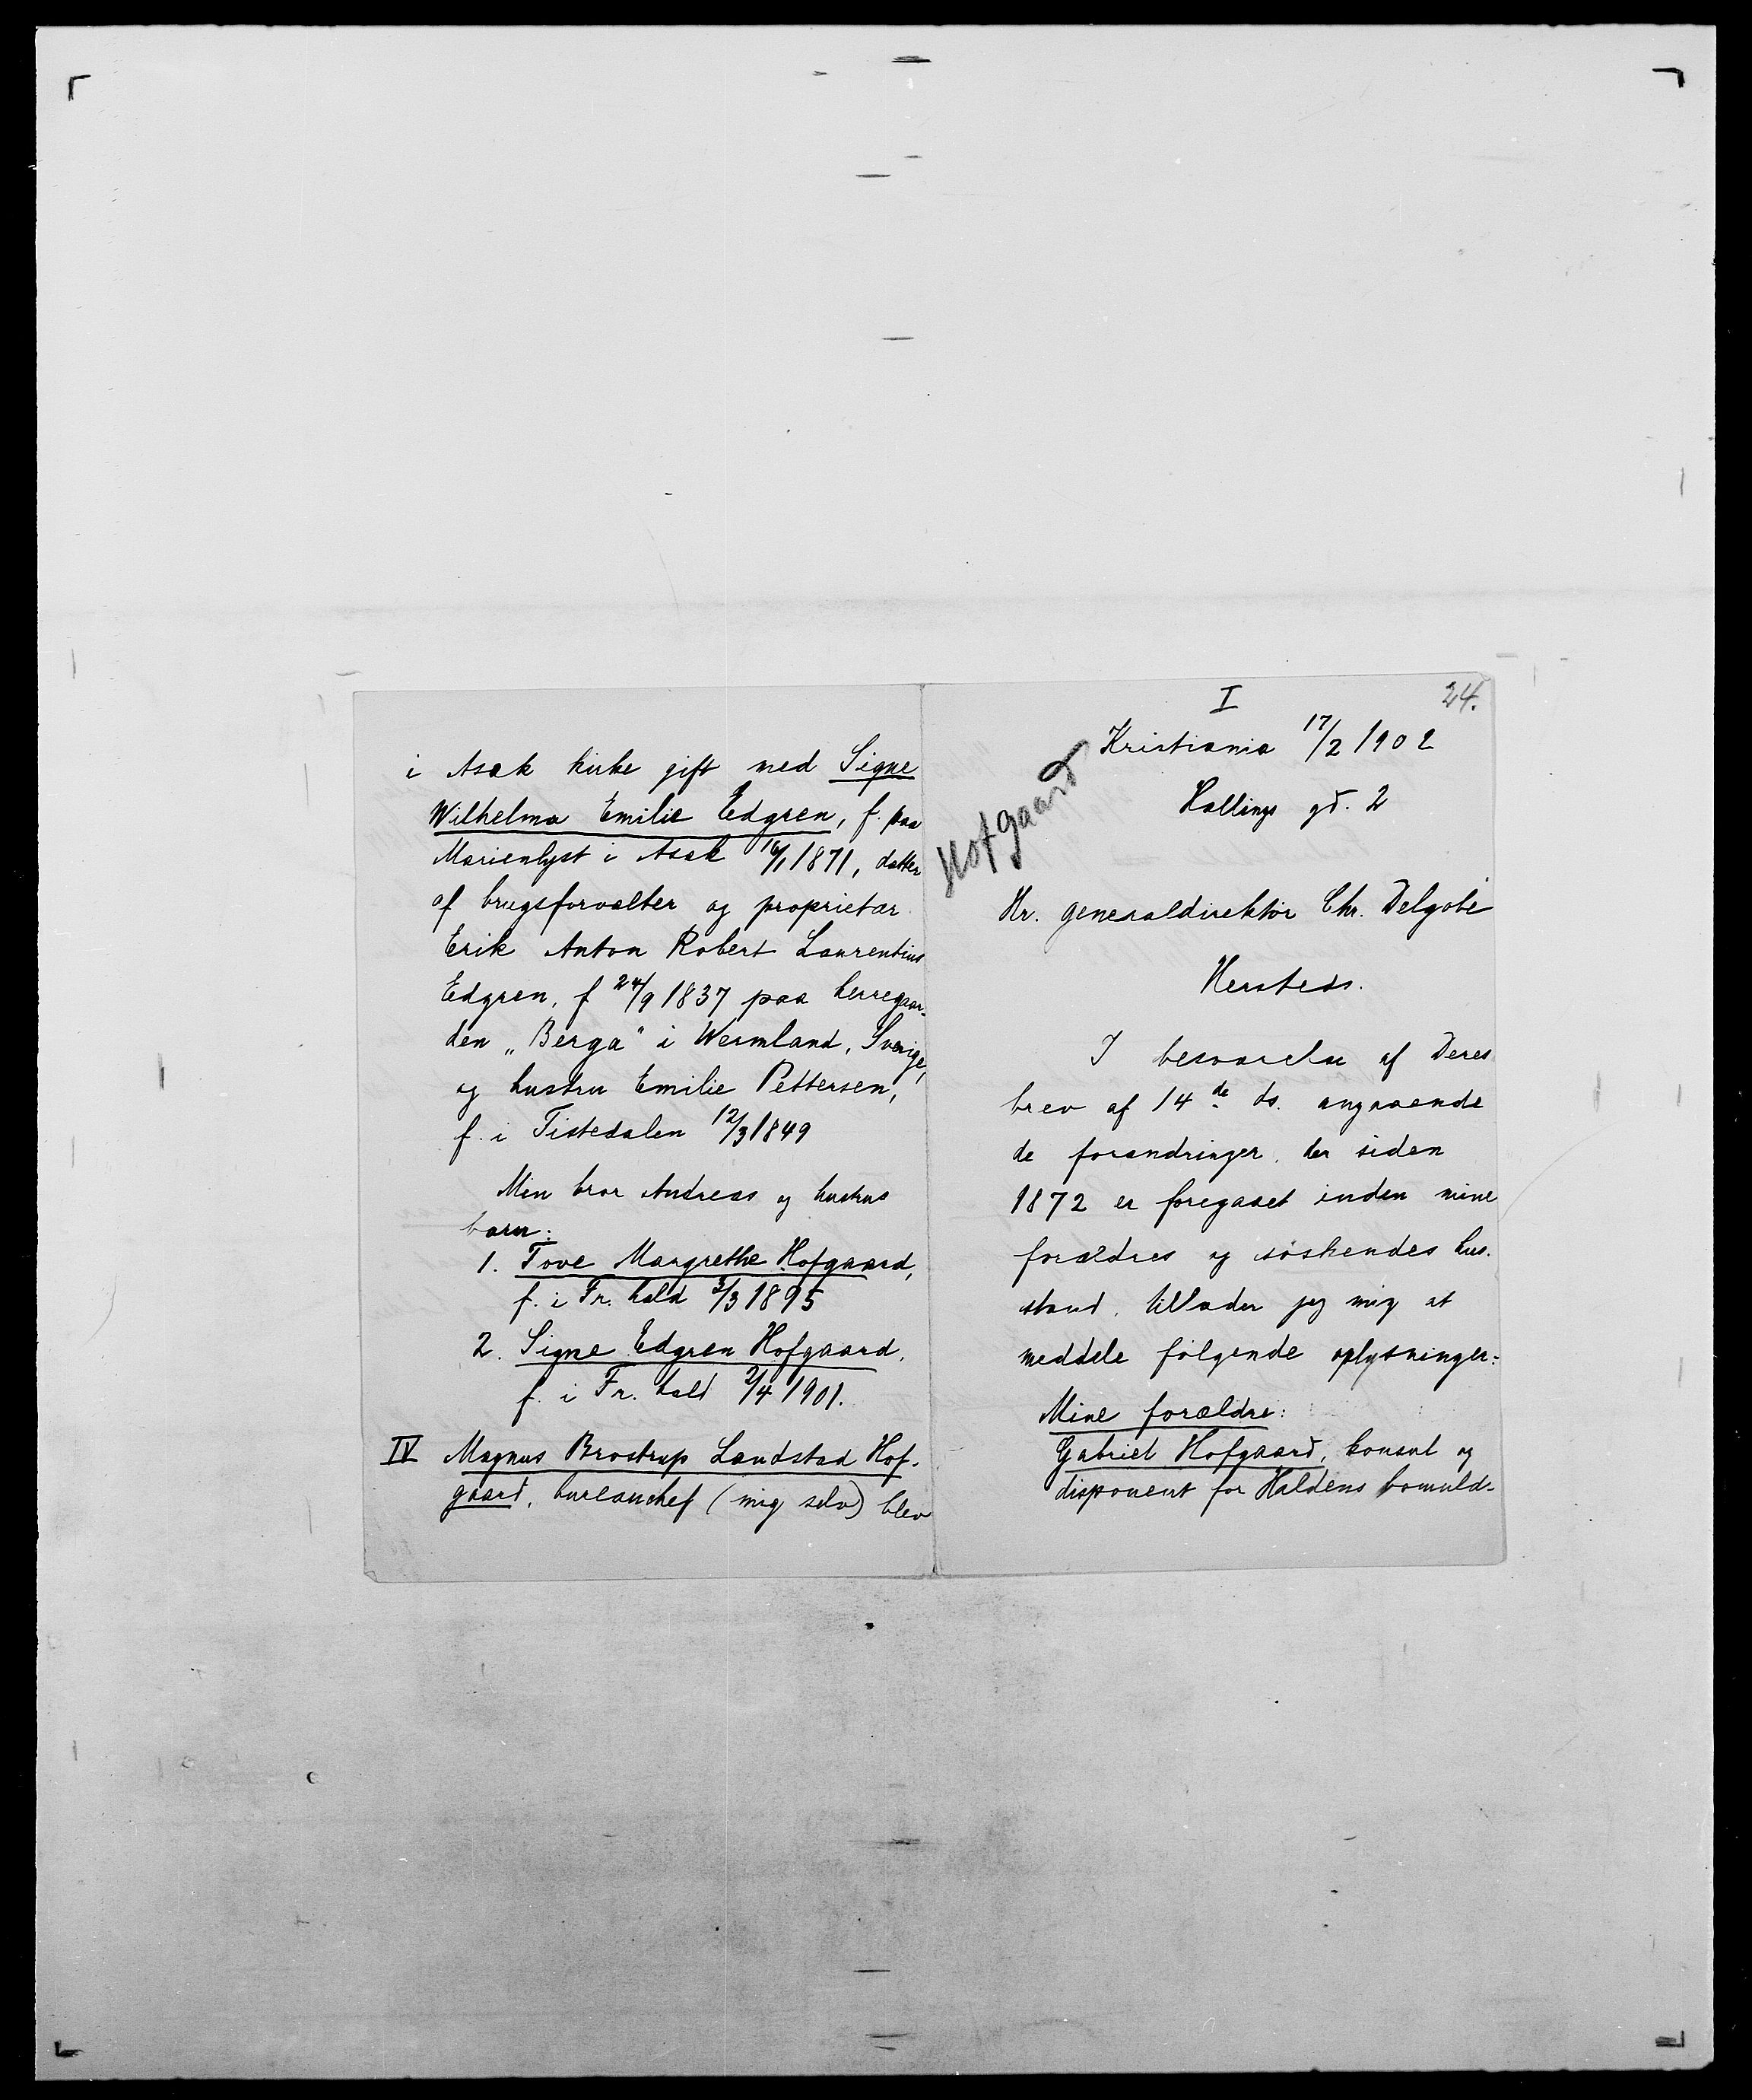 i Asak kirke gift med Signe
Wilhelma Emilie Edgren, f. paa
Marienlyst i Asak 16/1 1871, datter
af brugsforvalter og proprietær
Erik Anton Robert Laurentius
Edgren, f 24/9 1837 paa herregaar-
den „Berga" i Wermland, Sverige,
og hustru Emilie Pettersen,
f. i Tistedalen 12/3 1849
Min bror Andreas og hustrus
barn:
1. Tove Margrethe Hofgaard,
f. i Fr. hald 3/3 1895
2. Signe Edgren Hofgaard,
f. i Fr. hald 2/4 1901.
IV Magnus Brostrup Landstad Hof-
gaard, bureauchef (mig selv) blev
I 24.
Hofgaard
Kristiania 17/2 1902
Hallings gd. 2
Hr. generaldirektør Chr. Delgobe
Hersteds.
I besvarelse af Deres
brev af 14de ds. angaaende
de forandringer, der siden
1872 er foregaaet inden mine
forældres og søskendes hus-
stand, tillader jeg mig at
meddele følgende oplysninger:
Mine forældre:
Gabriel Hofgaard, konsul og
disponent for Haldens bomuld-